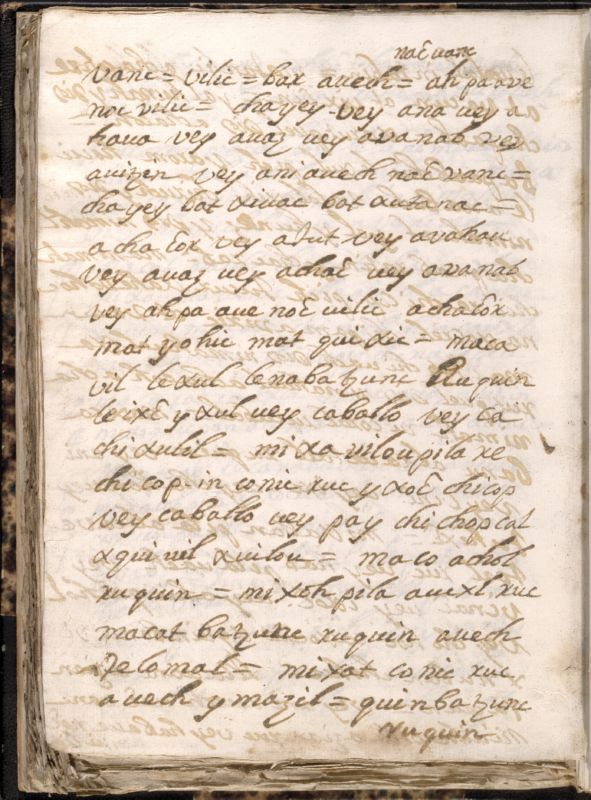 noĉ vanc
vanc = vilic = bax auech = ah pa ave
noc vilic = chayey vey ana vey a
haua vey auaz vey avanab vey
auitzin vey ani auech noĉ vanc =
chayey bat xivac bat xutanac =
acha ĉox vey alut vey avahau
vey auaz vey achaĉ vey avanab
vey ah pa aue noĉ vilic achaĉox
mat yohic mat quixic = maca
vil lexul lenabatzunc xuquin
leixĉ yxul vey caballo vey ca
chixulil = mixa vilou pila xe
chicop in conic xuc yxoĉ chicop
vey caballo vey pay chichop cal
xquivil xvilou = maco achol
xuquin = mixoh pila auexl xuc
macat batzunc xuquin auech
telomal = mixat conic xuc
auech ymazil = quinbatzunc
xuquin